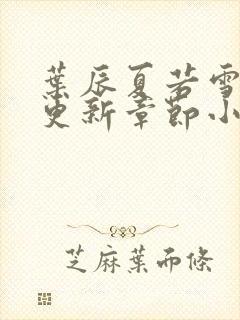 葉辰夏若雪
更新章節小
芝麻葉而條